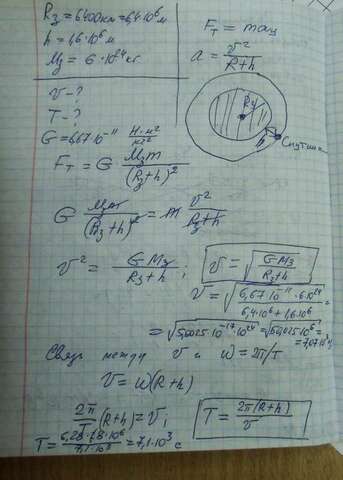 Rз = 6400км = 6,4·10⁶м
h = 1,6·10⁶м
Mз = 6·10²⁴кг
v - ?
T - ?
G = 6,67·10⁻¹¹ Н·м²/кг²
Fт = maц
a = v²/R+h
Rз
h
Спутник
Fт = G Mзm/(Rз+h)²
G Mзm/(Rз+h)² = m v²/Rз+h
v² = GMз/Rз+h ; v = √GMз/Rз+h
v = √6,67·10⁻¹¹·6·10²⁴/6,4·10⁶+1,6·10⁶ =
= 7,07·10³
Связь между v и ω = 2π/T
v = ω(R+h)
2π/T (R+h) = v, T = 2π(R+h)/v
T = 6,28·8·10⁶/7,1·10³ = 7,1·10³ с